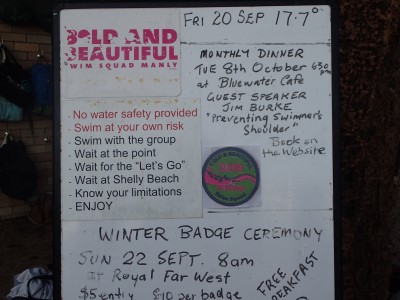 BOLD AND
BEAUTIFUL
WIM SQUAD MANLY
FRI 20 SEP 17.7°
MONTHLY DINNER
TUE 8th October 630 pm
at Bluewater Cafe
GUEST SPEAKER
JIM BURKE
"Preventing Swimmer's
Shoulder"
Book on
the Website
- No water safety provided
- Swim at your own risk
- Swim with the group
- Wait at the point
- Wait for the "Let's Go"
- Wait at Shelly Beach
- Know your limitations
- ENJOY
BOLD & BEAUTIFUL
Swim Squad
WINTER BADGE CEREMONY
SUN 22 SEPT. 8am
at Royal Far West
$5 entry $10 per badge
FREE
BREAKFAST